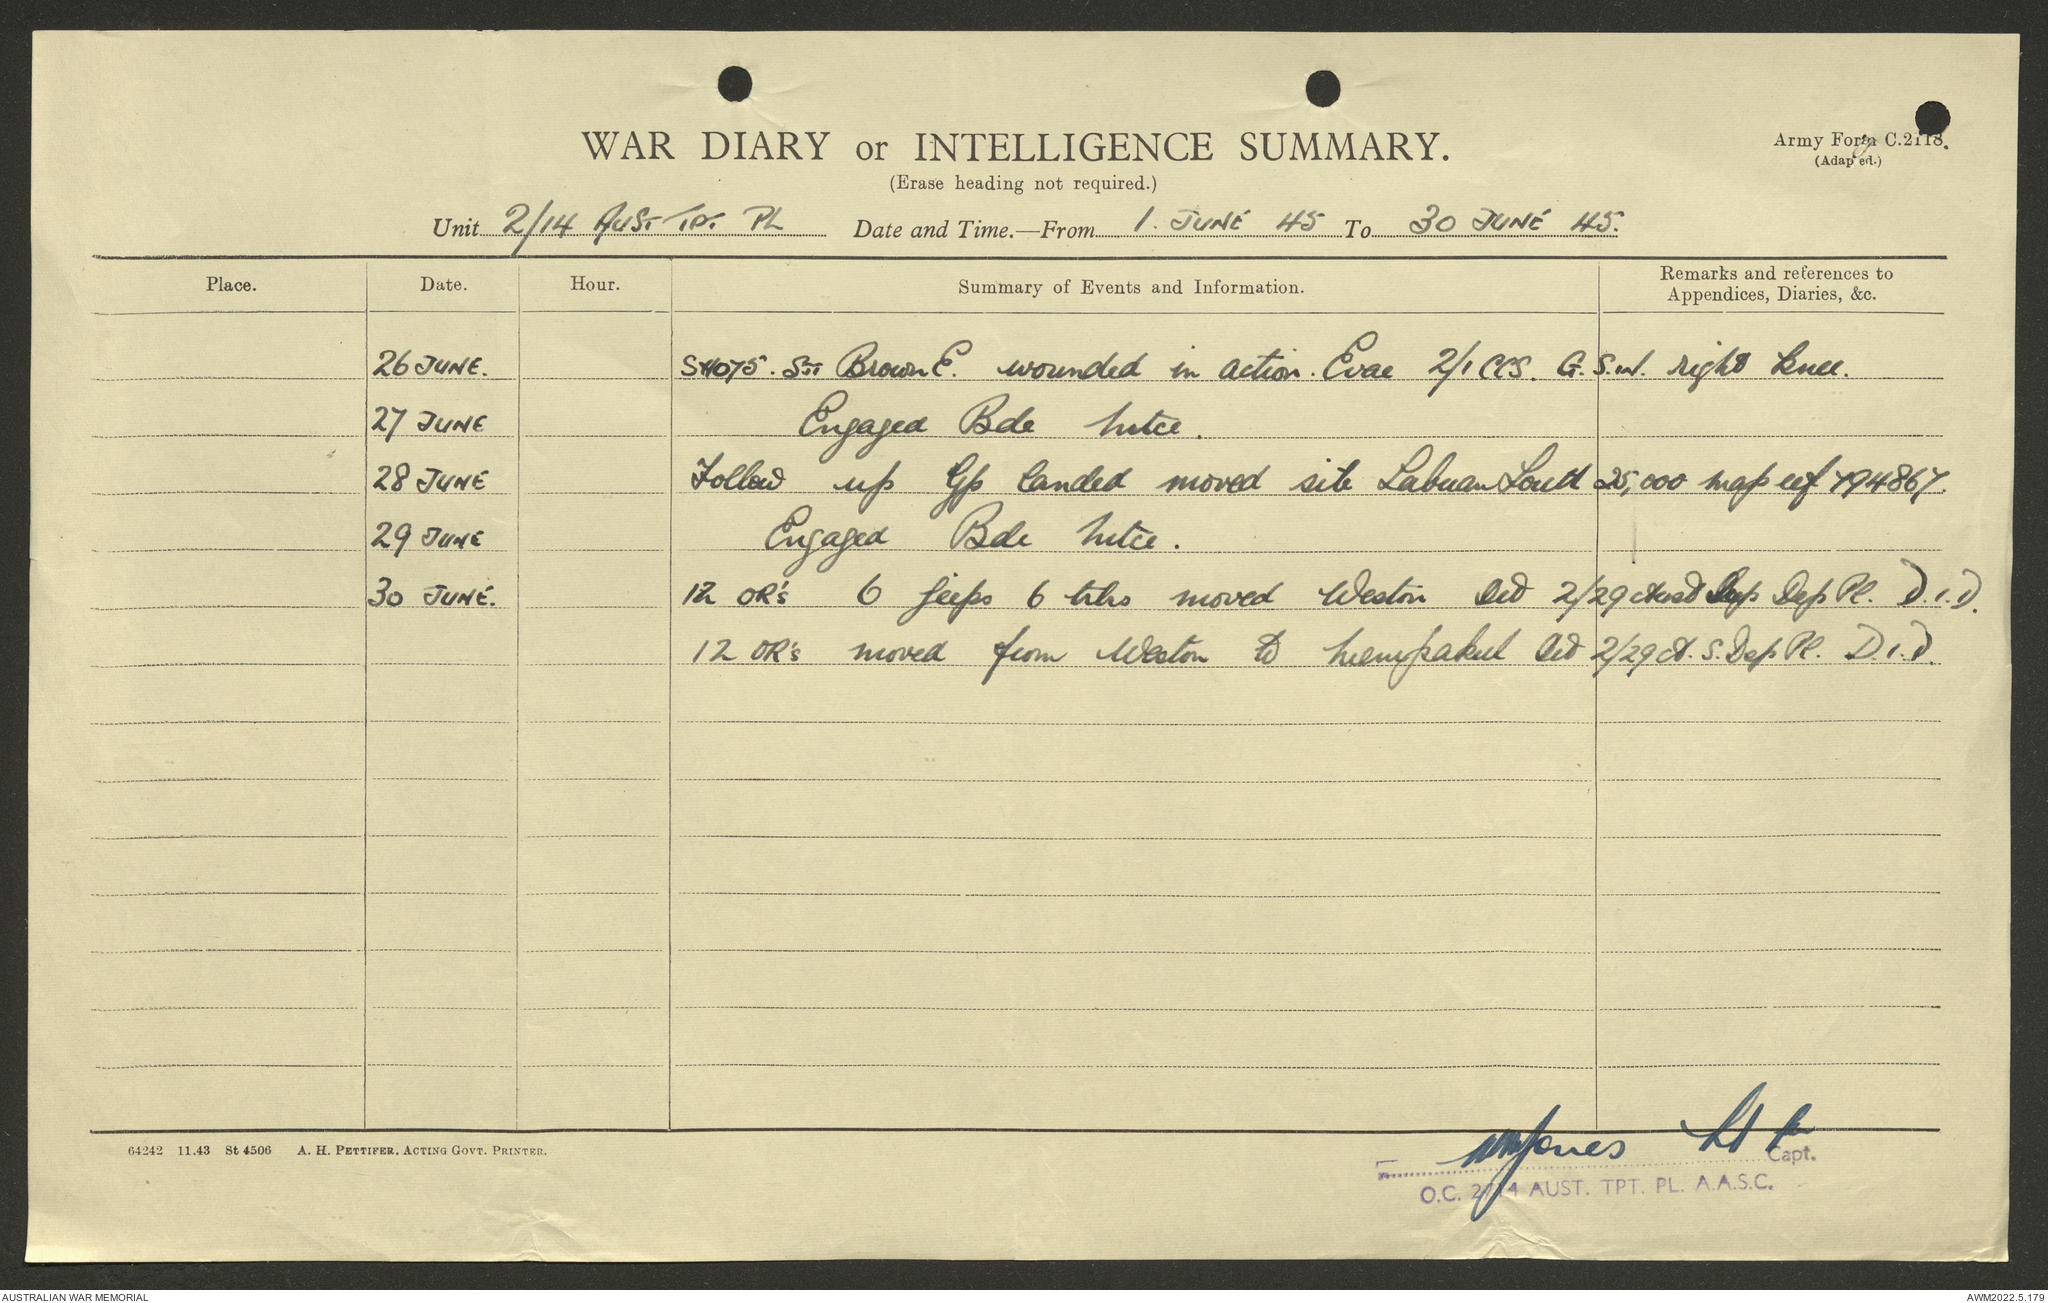 WAR DIARY or INTELLIGENCE SUMMARY.
Army Form C.2118.
(Adapted.)
(Erase heading not required.)
Unit 2/14 AUST TPT PL Date and Time.—From 1. JUNE 45 To 30 JUNE 45.
Place. Date. Hour. Summary of Events and Information. Remarks and references to
Appendices, Diaries, &c.
26 JUNE. Brown E. wounded in action. Evac 2/1 CCS. G.S.W. right knee.
27 JUNE Engaged Bde Mtce.
28 JUNE Follow up Gp landed moved site Labuan South 25,000 map ref 794867.
29 JUNE Engaged Bde Mtce.
30 JUNE. 12 OR's 6 jeeps 6 trlrs moved Weston 2/29 Aust Dep Pl. D.I.D.
12 OR's moved from Weston to 2/29 A. S. Dep Pl. D.I.D.
64242 11.43 St 4506 A. H. PETTIFER, ACTING GOVT. PRINTER.
Jones Lt
Capt.
O.C. 2/14 AUST. TPT. PL. A.A.S.C.
AUSTRALIAN WAR MEMORIAL
AWM2022.5.179